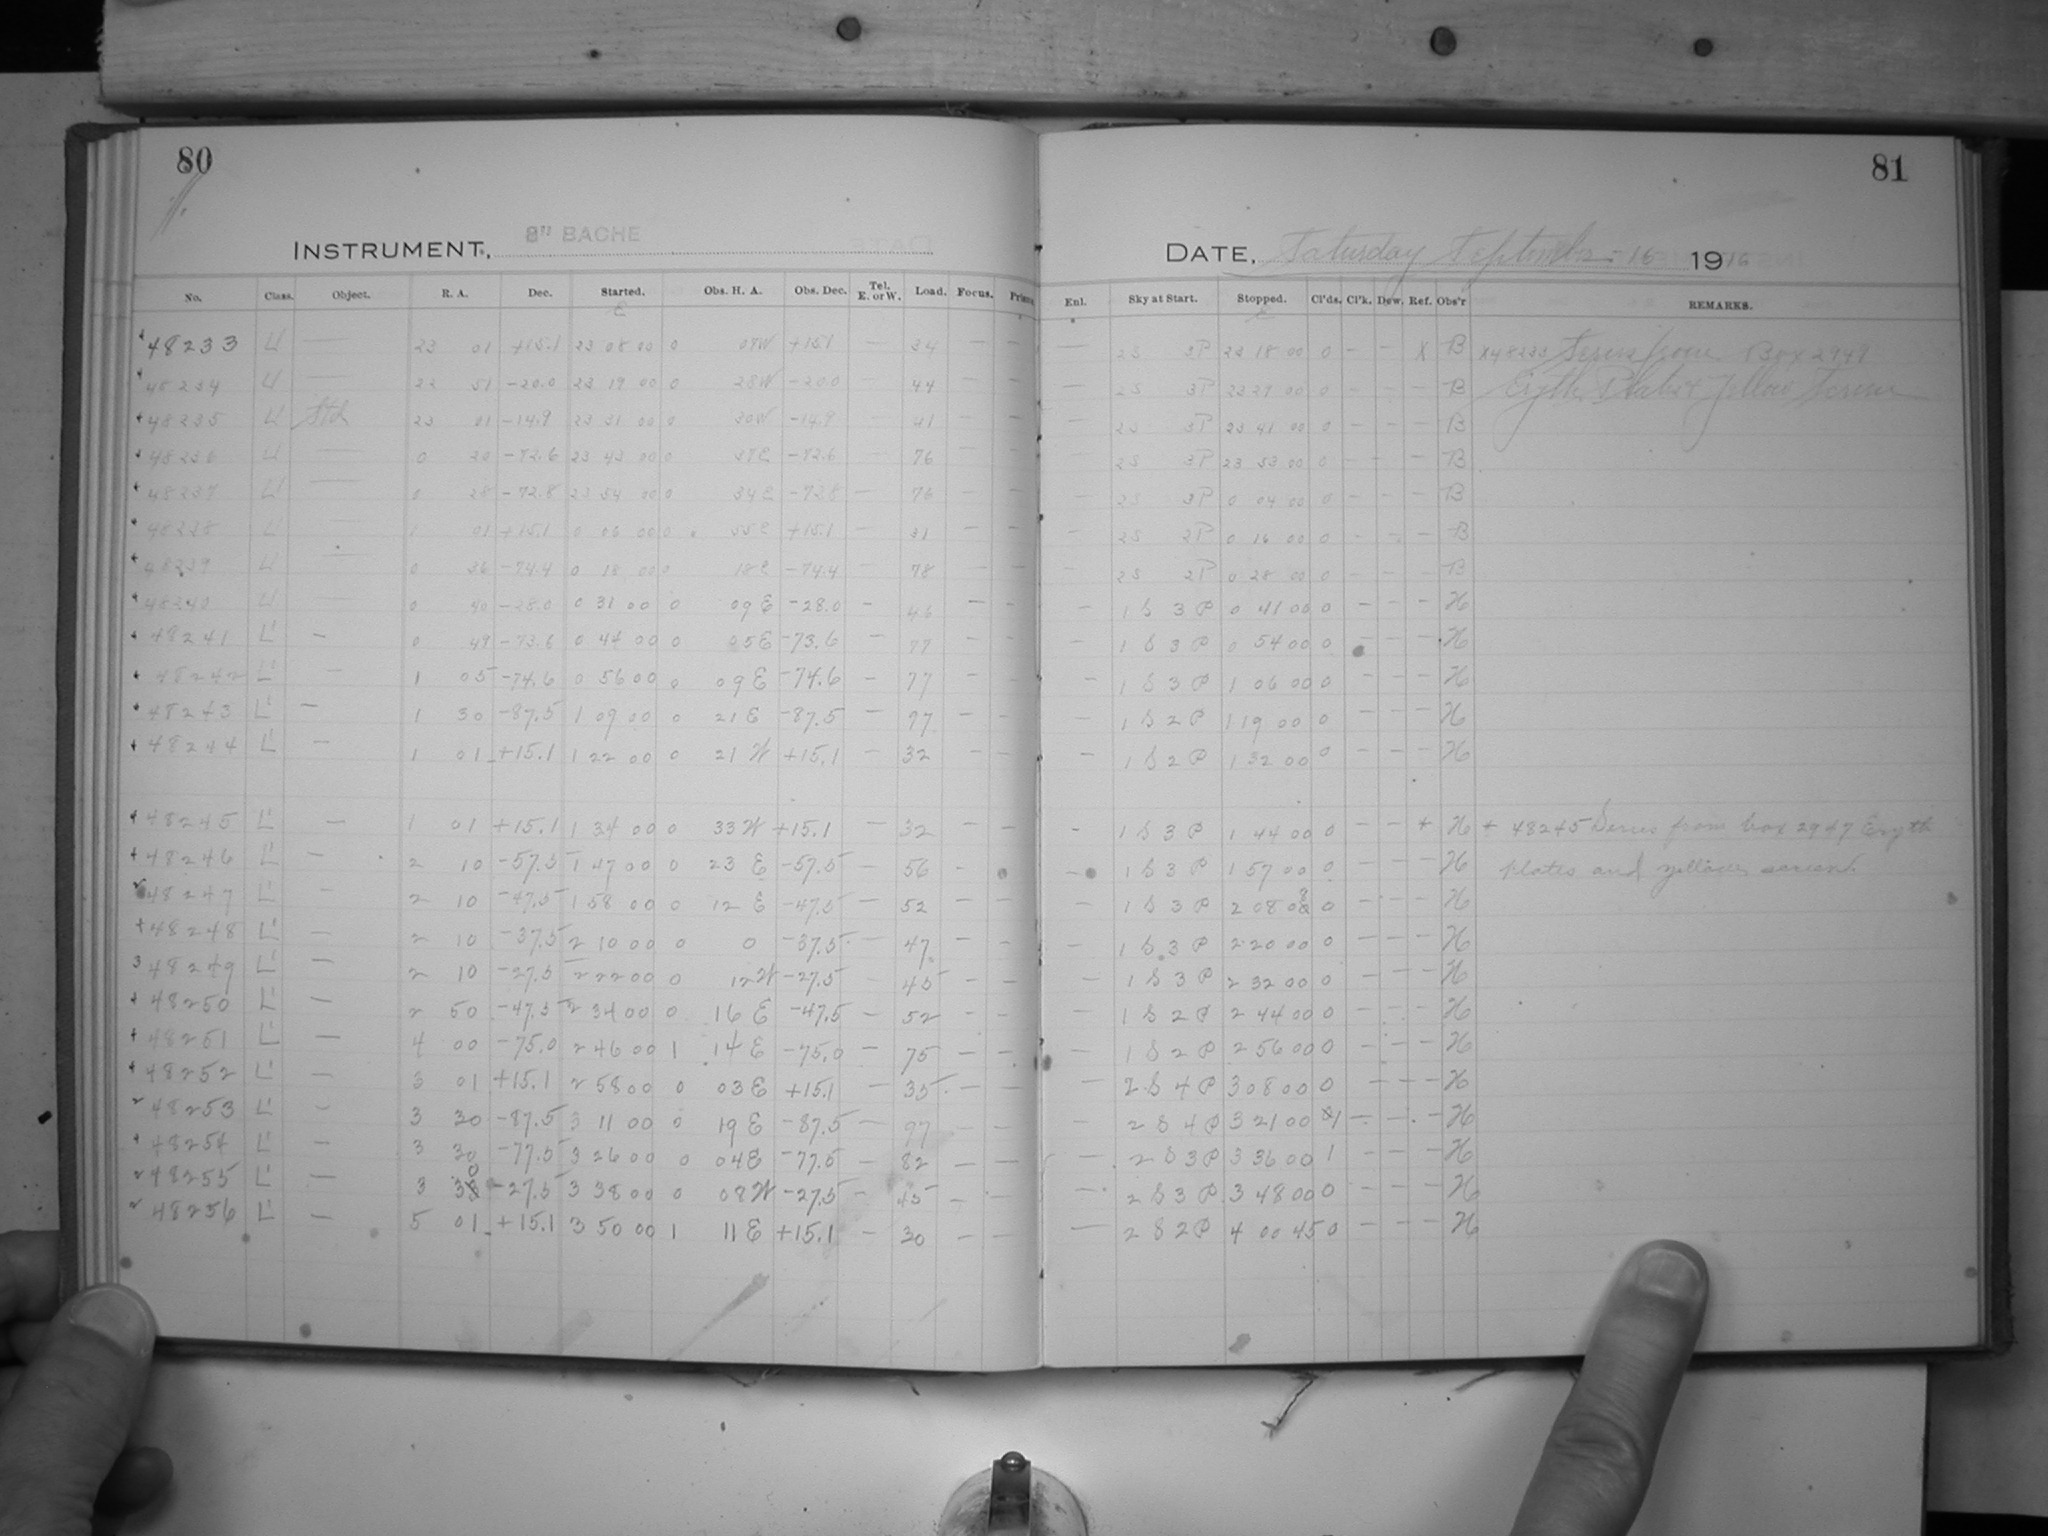 80
81
INSTRUMENT, 8" BACHE
DATE, Saturday September 16 1916
No. Class. Object. R. A. Dec. Started. Obs. H. A. Obs. Dec. Tel. E. or W. Load. Focus. Prism
Enl. Sky at Start. Stopped. Cl'ds. Cl'k. Dew. Ref. Obs'r REMARKS.
48233 L' — 23 01 +15.1 23 08 00 0 07W +15.1 — 34 — — — 2S 3P 23 18 00 0 — — X B X48233 Series from Box 2949
48234 L' — 22 51 -20.0 23 19 00 0 28W -20.0 — 44 — — — 2S 3P 23 29 00 0 — — — B Eryth. Plates & Yellow Screen
48235 L' Std 23 01 -14.9 23 31 00 0 30W -14.9 — 41 — — — 2S 3P 23 41 00 0 — — — B
48236 L' — 0 20 -72.6 23 43 00 0 37E -72.6 — 76 — — — 2S 3P 23 53 00 0 — — — B
48237 L' — 0 28 -72.8 23 54 00 0 34E -72.8 — 76 — — — 2S 3P 0 04 00 0 — — — B
48238 L' — 1 01 +15.1 0 06 00 0 55E +15.1 — 31 — — — 2S 2P 0 16 00 0 — — — B
48239 L' — 0 36 -74.4 0 18 00 0 18E -74.4 — 78 — — — 2S 2P 0 28 00 0 — — — B
48240 L' — 0 40 -28.0 0 31 00 0 09E -28.0 — 46 — — — 1S 3P 0 41 00 0 — — — H
48241 L' — 0 49 -73.6 0 44 00 0 05E -73.6 — 77 — — — 1S 3P 0 54 00 0 — — — H
48242 L' — 1 05 -74.6 0 56 00 0 09E -74.6 — 77 — — — 1S 3P 1 06 00 0 — — — H
48243 L' — 1 30 -87.5 1 09 00 0 21E -87.5 — 97 — — — 1S 2P 1 19 00 0 — — — H
48244 L' — 1 01 +15.1 1 22 00 0 21W +15.1 — 32 — — — 1S 2P 1 32 00 0 — — — H
48245 L' — 1 01 +15.1 1 34 00 0 33W +15.1 — 32 — — - 1S 3P 1 44 00 0 — — + H + 48245 Series from box 2947 Eryth
48246 L' — 2 10 -57.5 1 47 00 0 23E -57.5 — 56 — — 1S 3P 1 57 00 0 H plates and yellow screen.
48247 L' — 2 10 -47.5 1 58 00 0 12E -47.5 — 52 — — — 1S 3P 2 08 0 — — — H
48248 L' — 2 10 -37.5 2 10 00 0 0 -37.5 — 47 — — — 1S 3P 2 20 00 0 — — — H
48249 L' — 2 10 -27.5 2 22 00 0 12W -27.5 — 45 — — — 1S 3P 2 32 00 0 — — — H
48250 L' — 2 50 -47.5 2 34 00 0 16E -47.5 — 52 — — — 1S 2P 2 44 00 0 — — — H
48251 L' — 4 00 -75.0 2 46 00 1 14E -75.0 — 75 — — — 1S 2P 2 56 00 0 — — — H
48252 L' — 3 01 +15.1 2 58 00 0 03E +15.1 — 35 — — — 2S 4P 3 08 00 0 — — — H
48253 L' — 3 30 -87.5 3 11 00 0 19E -87.5 — 97 — — — 2S 4P 3 21 00 1 — — — H
48254 L' — 3 30 -77.5 3 26 00 0 04E -77.5 — 82 — — — 2S 3P 3 36 00 1 — — — H
48255 L' — 3 30 -27.5 3 38 00 0 08W -27.5 — 45 — — — 2S 3P 3 48 00 0 — — — H
48256 L' — 5 01 +15.1 3 50 00 1 11E +15.1 — 30 — — — 2S 2P 4 00 45 0 — — — H